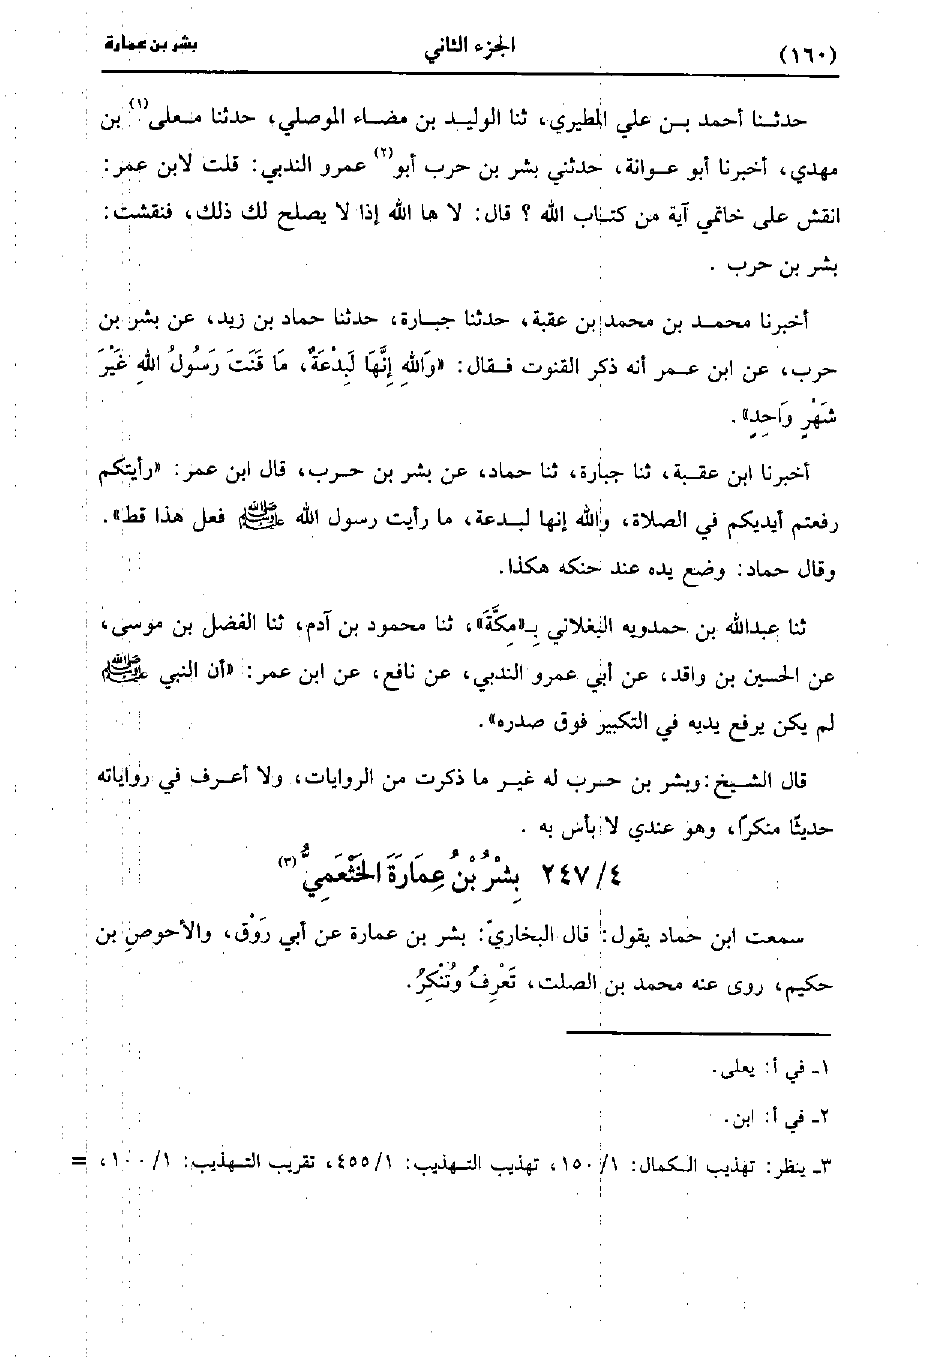 (١٦٠) الجزء الثاني بشر بن عمارة
حدثنا أحمد بن علي المطيري، ثنا الوليد بن مضاء الموصلي، حدثنا معلى(١) بن
مهدي، أخبرنا أبو عوانة، حدثني بشر بن حرب أبو(٢) عمرو الندبي: قلت لابن عمر:
انقش على خاتمي آية من كتاب الله ؟ قال: لا ها الله إذا لا يصلح لك ذلك، فنقشت:
بشر بن حرب .
أخبرنا محمد بن محمد بن عقبة، حدثنا جبارة، حدثنا حماد بن زيد، عن بشر بن
حرب، عن ابن عمر أنه ذكر القنوت فقال: «وَاللهِ إِنَّهَا لَبِدْعَةٌ، مَا قَنَتَ رَسُولُ اللهِ غَيْرَ
شَهْرٍ وَاحِدٍ».
أخبرنا ابن عقبة، ثنا جبارة، ثنا حماد، عن بشر بن حرب، قال ابن عمر: «رأيتكم
رفعتم أيديكم في الصلاة، والله إنها لبدعة، ما رأيت رسول الله ﷺ فعل هذا قط».
وقال حماد: وضع يده عند حنكه هكذا.
ثنا عبدالله بن حمدويه البغلاني بـ«مكَّةَ»، ثنا محمود بن آدم، ثنا الفضل بن موسى،
عن الحسين بن واقد، عن أبي عمرو الندبي، عن نافع، عن ابن عمر: «أن النبي ﷺ
لم يكن يرفع يديه في التكبير فوق صدره».
قال الشيخ: وبشر بن حرب له غير ما ذكرت من الروايات، ولا أعرف في رواياته
حديثًا منكرًا، وهو عندي لا بأس به .
٢٤٧/٤ بِشْرُ بْنُ عِمَارَةَ الخَثْعَمِيُّ(٣)
سمعت ابن حماد يقول: قال البخاريّ: بشر بن عمارة عن أبي رَوْق، والأحوصِ بن
حكيم، روى عنه محمد بن الصلت، تَعْرِفُ وتُنْكِرُ.
١ـ في أ: يعلى.
٢ـ في أ: ابن.
٣ـ ينظر: تهذيب الكمال: ١٥٠/١، تهذيب التهذيب: ٤٥٥/١، تقريب التهذيب: ١٠٠/١، =